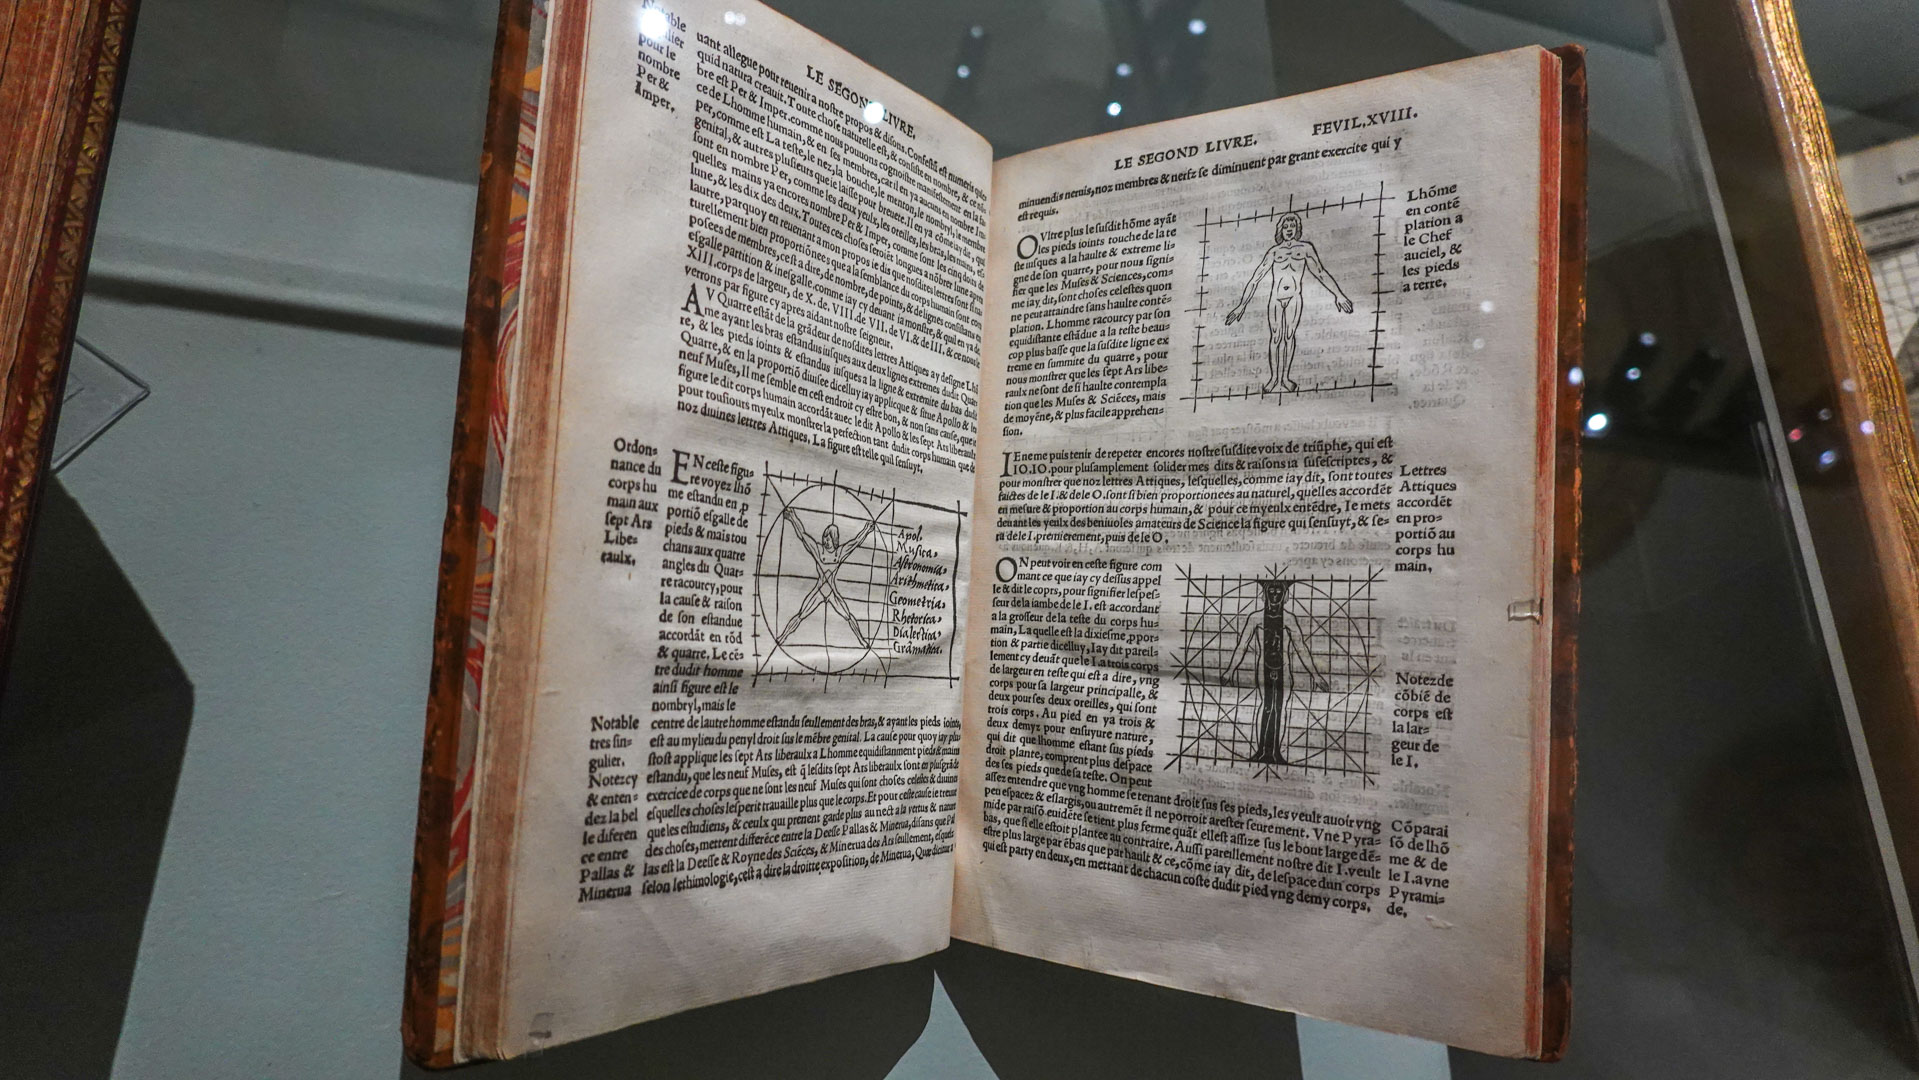 LE SEGOND LIVRE.
Notable
pour le
nombre
Per &
Imper.
uant allegue pour reuenir a nostre propos & disons. Consestũ est numeris
quid natura creauit. Toute chose naturelle est, & consiste en nombre, & ce
bre est Per & Imper. comme nous pouuons cognoistre manifestement en la
ce de Lhomme humain, & en ses membres, car il en ya aucuns en nombre Im
per, comme est La teste, le nez, la bouche, le menton, le nombryl, le membre
genital, & autres plusieurs que ie laisse pour breuete. Il en ya cõme iay dit, qui
sont en nombre Per, comme les deux yeulx, les oreilles, les bras, les mains,
quelles mains ya encores nombre Per & Imper, comme sont les cinq doits de
lune, & les dix des deux. Toutes ces choses seroiẽt longues a nõbrer lune apres
lautre, parquoy en reuenant a mon propos ie dis que nosdites lettres sont si na
turellement bien proportiõnees que a la semblance du corps humain sont com
posees de membres, cest a dire, de nombre, de points, & de lignes consistans en
esgalle partition & inesgalle. comme iay cy deuant ia monstre, & quil en ya de
XIII. corps de largeur, de X. de VIII. de VII. de VI. & de III, & ce nous le
verrons par figure cy apres aidant nostre seigneur.
AV Quarre estãt de la grãdeur de nosdites lettres Attiques ay designe Lhõ
me ayant les bras estandus iusques aux deux lignes extremes dudit Quar
re, & les pieds ioints & estandus iusques a la ligne & extremite du bas dudit
Quarre, & en la proportiõ diuisee dicelluy iay applicque & situe Apollo & les
neuf Muses, Il me semble en cest endroit cy estre bon, & non sans cause, que ie
figure le dit corps humain accordãt auec le dit Apollo & les sept Ars liberaulx
pour tousiours myeulx monstrer la perfection tant dudit corps humain que de
noz diuines lettres Attiques. La figure est telle quil sensuyt.
Ordon-
nance du
corps hu
main aux
sept Ars
Libe-
raulx.
EN ceste figu
re voyez lhõ
me estandu en p
portiõ esgalle de
pieds & mais tou
chans aux quatre
angles du Quar-
re racourcy, pour
la cause & raison
de son estandue
accordãt en rõd
& quarre. Le cẽ-
tre dudit homme
ainsi figure est le
nombryl, mais le
Apol.
Musica.
Astronomia.
Arithmetica.
Geometria.
Rhetorica.
Dialectica.
Grãmatica.
Notable
tres sin-
gulier.
Notez cy
& enten-
dez la bel
le diferen
ce entre
Pallas &
Minerua
centre de lautre homme estandu seullement des bras, & ayant les pieds ioints,
est au mylieu du penyl droit sus le mẽbre genital. La cause pour quoy iay plus
stost applique les sept Ars liberaulx a Lhomme equidistamment pieds & mains
estandu, que les neuf Muses, est q̃ lesdits sept Ars liberaulx sont en plus grãde
exercice de corps que ne sont les neuf Muses qui sont choses celestes & diuines
esquelles choses lesperit trauaille plus que le corps. Et pour ceste cause ie treuue
que les estudiens, & ceulx qui prenent garde plus au nect a la vertus & nature
des choses, mettent differẽce entre la Deesse Pallas & Minerua, disans que Pal
las est la Deesse & Royne des Sciẽces, & Minerua des Ars seullement, esquels
selon lethimologie, cest a dire la droitte exposition, de Minerua,
LE SEGOND LIVRE. FEVIL.XVIII.
minuendis neruis, noz membres & nerfz se diminuent par grant exercite qui y
est requis.
OVltre plus le susdit hõme ayãt
les pieds ioints touche de la te
ste iusques a la haulte & extreme li
gne de son quarre, pour nous signi-
fier que les Muses & Sciences, com-
me iay dit, sont choses celestes quon
ne peut attaindre sans haulte contẽ-
plation. Lhomme racourcy par son
equidistante estãdue a la teste beau-
cop plus basse que la susdite ligne ex
treme en summite du quarre, pour
nous monstrer que les sept Ars libe-
raulx ne sont de si haulte contempla
tion que les Muses & Sciẽces, mais
de moyẽne, & plus facile apprehen-
sion.
Lhõme
en contẽ
plation a
le Chef
au ciel, &
les pieds
a terre.
IE ne me puis tenir de repeter encores nostre susdite voix de triũphe, qui est
IO.IO. pour plus amplement solider mes dits & raisons ia susescriptes, &
pour monstrer que noz lettres Attiques, lesquelles, comme iay dit, sont toutes
faictes de le I. & de le O. sont si bien proportionees au naturel, quelles accordẽt
en mesure & proportion au corps humain, & pour ce myeulx entẽdre, Ie mets
deuant les yeulx des beniuoles amateurs de Science la figure qui sensuyt, & se-
ra de le I. premierement, puis de le O.
Lettres
Attiques
accordẽt
en pro-
portiõ au
corps hu
main.
ON peut voir en ceste figure com
mant ce que iay cy dessus appel
le & dit le coprs, pour signifier lespes-
seur de la iambe de le I. est accordant
a la grosseur de la teste du corps hu-
main, La quelle est la dixiesme, ppor-
tion & partie dicelluy, Iay dit pareil-
lement cy deuãt que le I. a trois corps
de largeur en teste qui est a dire, vng
corps pour sa largeur principalle, &
deux pour ses deux oreilles, qui sont
trois corps. Au pied en ya trois &
deux demyz pour ensuyure nature,
qui dit que lhomme estant sus pieds
droit plante, comprent plus despace
des ses pieds que de sa teste. On peut
assez entendre que vng homme se tenant droit sus ses pieds, les veult auoir vng
peu espacez & eslargis, ou autremẽt il ne porroit arester seurement. Vne Pyra-
mide par raisõ euidẽte se tient plus ferme quãt elle est assize sus le bout large dẽ-
bas, que si elle estoit plantee au contraire. Aussi pareillement nostre dit I. veult
estre plus large par ẽbas que par hault & ce, cõme iay dit, de lespace dun corps
qui est party en deux, en mettant de chacun coste dudit pied vng demy corps.
Notez de
cõbiẽ de
corps est
la lar-
geur de
le I.
Cõparai
sõ de lhõ
me & de
le I. a vne
Pyrami-
de.